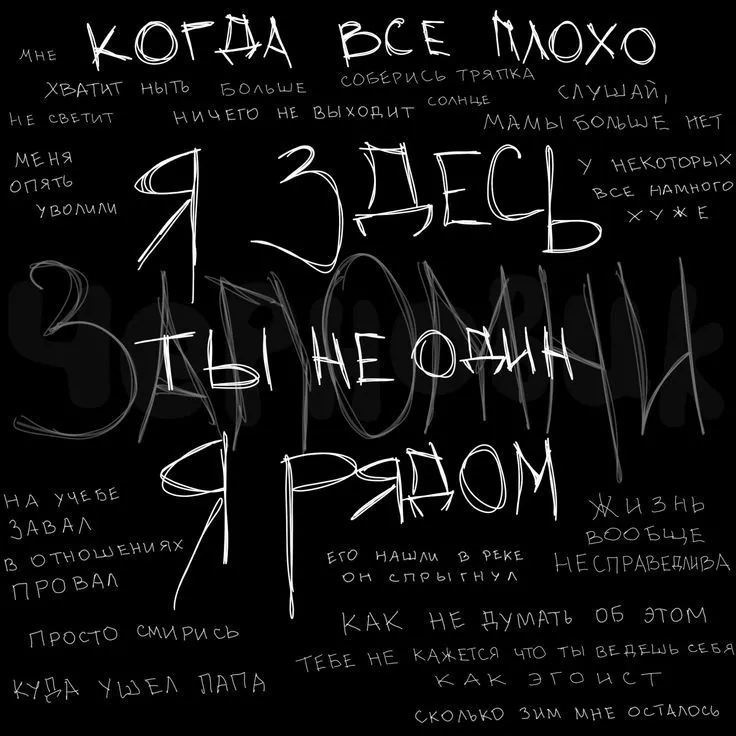 КОГДА ВСЕ ПЛОХО
МНЕ
ХВАТИТ НЫТЬ
БОЛЬШЕ
СОБЕРИСЬ ТРЯПКА
СЛУШАЙ,
НЕ СВЕТИТ
НИЧЕГО НЕ ВЫХОДИТ
СОЛНЦЕ
МАМЫ БОЛЬШЕ НЕТ
МЕНЯ
ОПЯТЬ
УВОЛИЛИ
Я ЗДЕСЬ
У НЕКОТОРЫХ
ВСЕ НАМНОГО
ХУЖЕ
ЗАПОМНИ
Черновик
ТЫ НЕ ОДИН
Я РЯДОМ
НА УЧЕБЕ
ЗАВАЛ
В ОТНОШЕНИЯХ
ПРОВАЛ
ЕГО НАШЛИ В РЕКЕ
ОН СПРЫГНУЛ
ЖИЗНЬ
ВООБЩЕ
НЕСПРАВЕДЛИВА
ПРОСТО СМИРИСЬ
КАК НЕ ДУМАТЬ ОБ ЭТОМ
ТЕБЕ НЕ КАЖЕТСЯ ЧТО ТЫ ВЕДЕШЬ СЕБЯ
КАК ЭГОИСТ
КУДА УШЕЛ ПАПА
СКОЛЬКО ЗИМ МНЕ ОСТАЛОСЬ